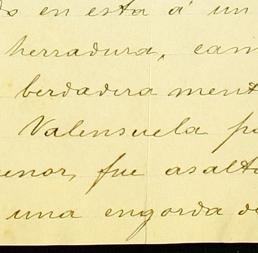 en esta á un
herradura, cam
berdadira ment
Valensuela po
enor, fue asalt
una engorda de